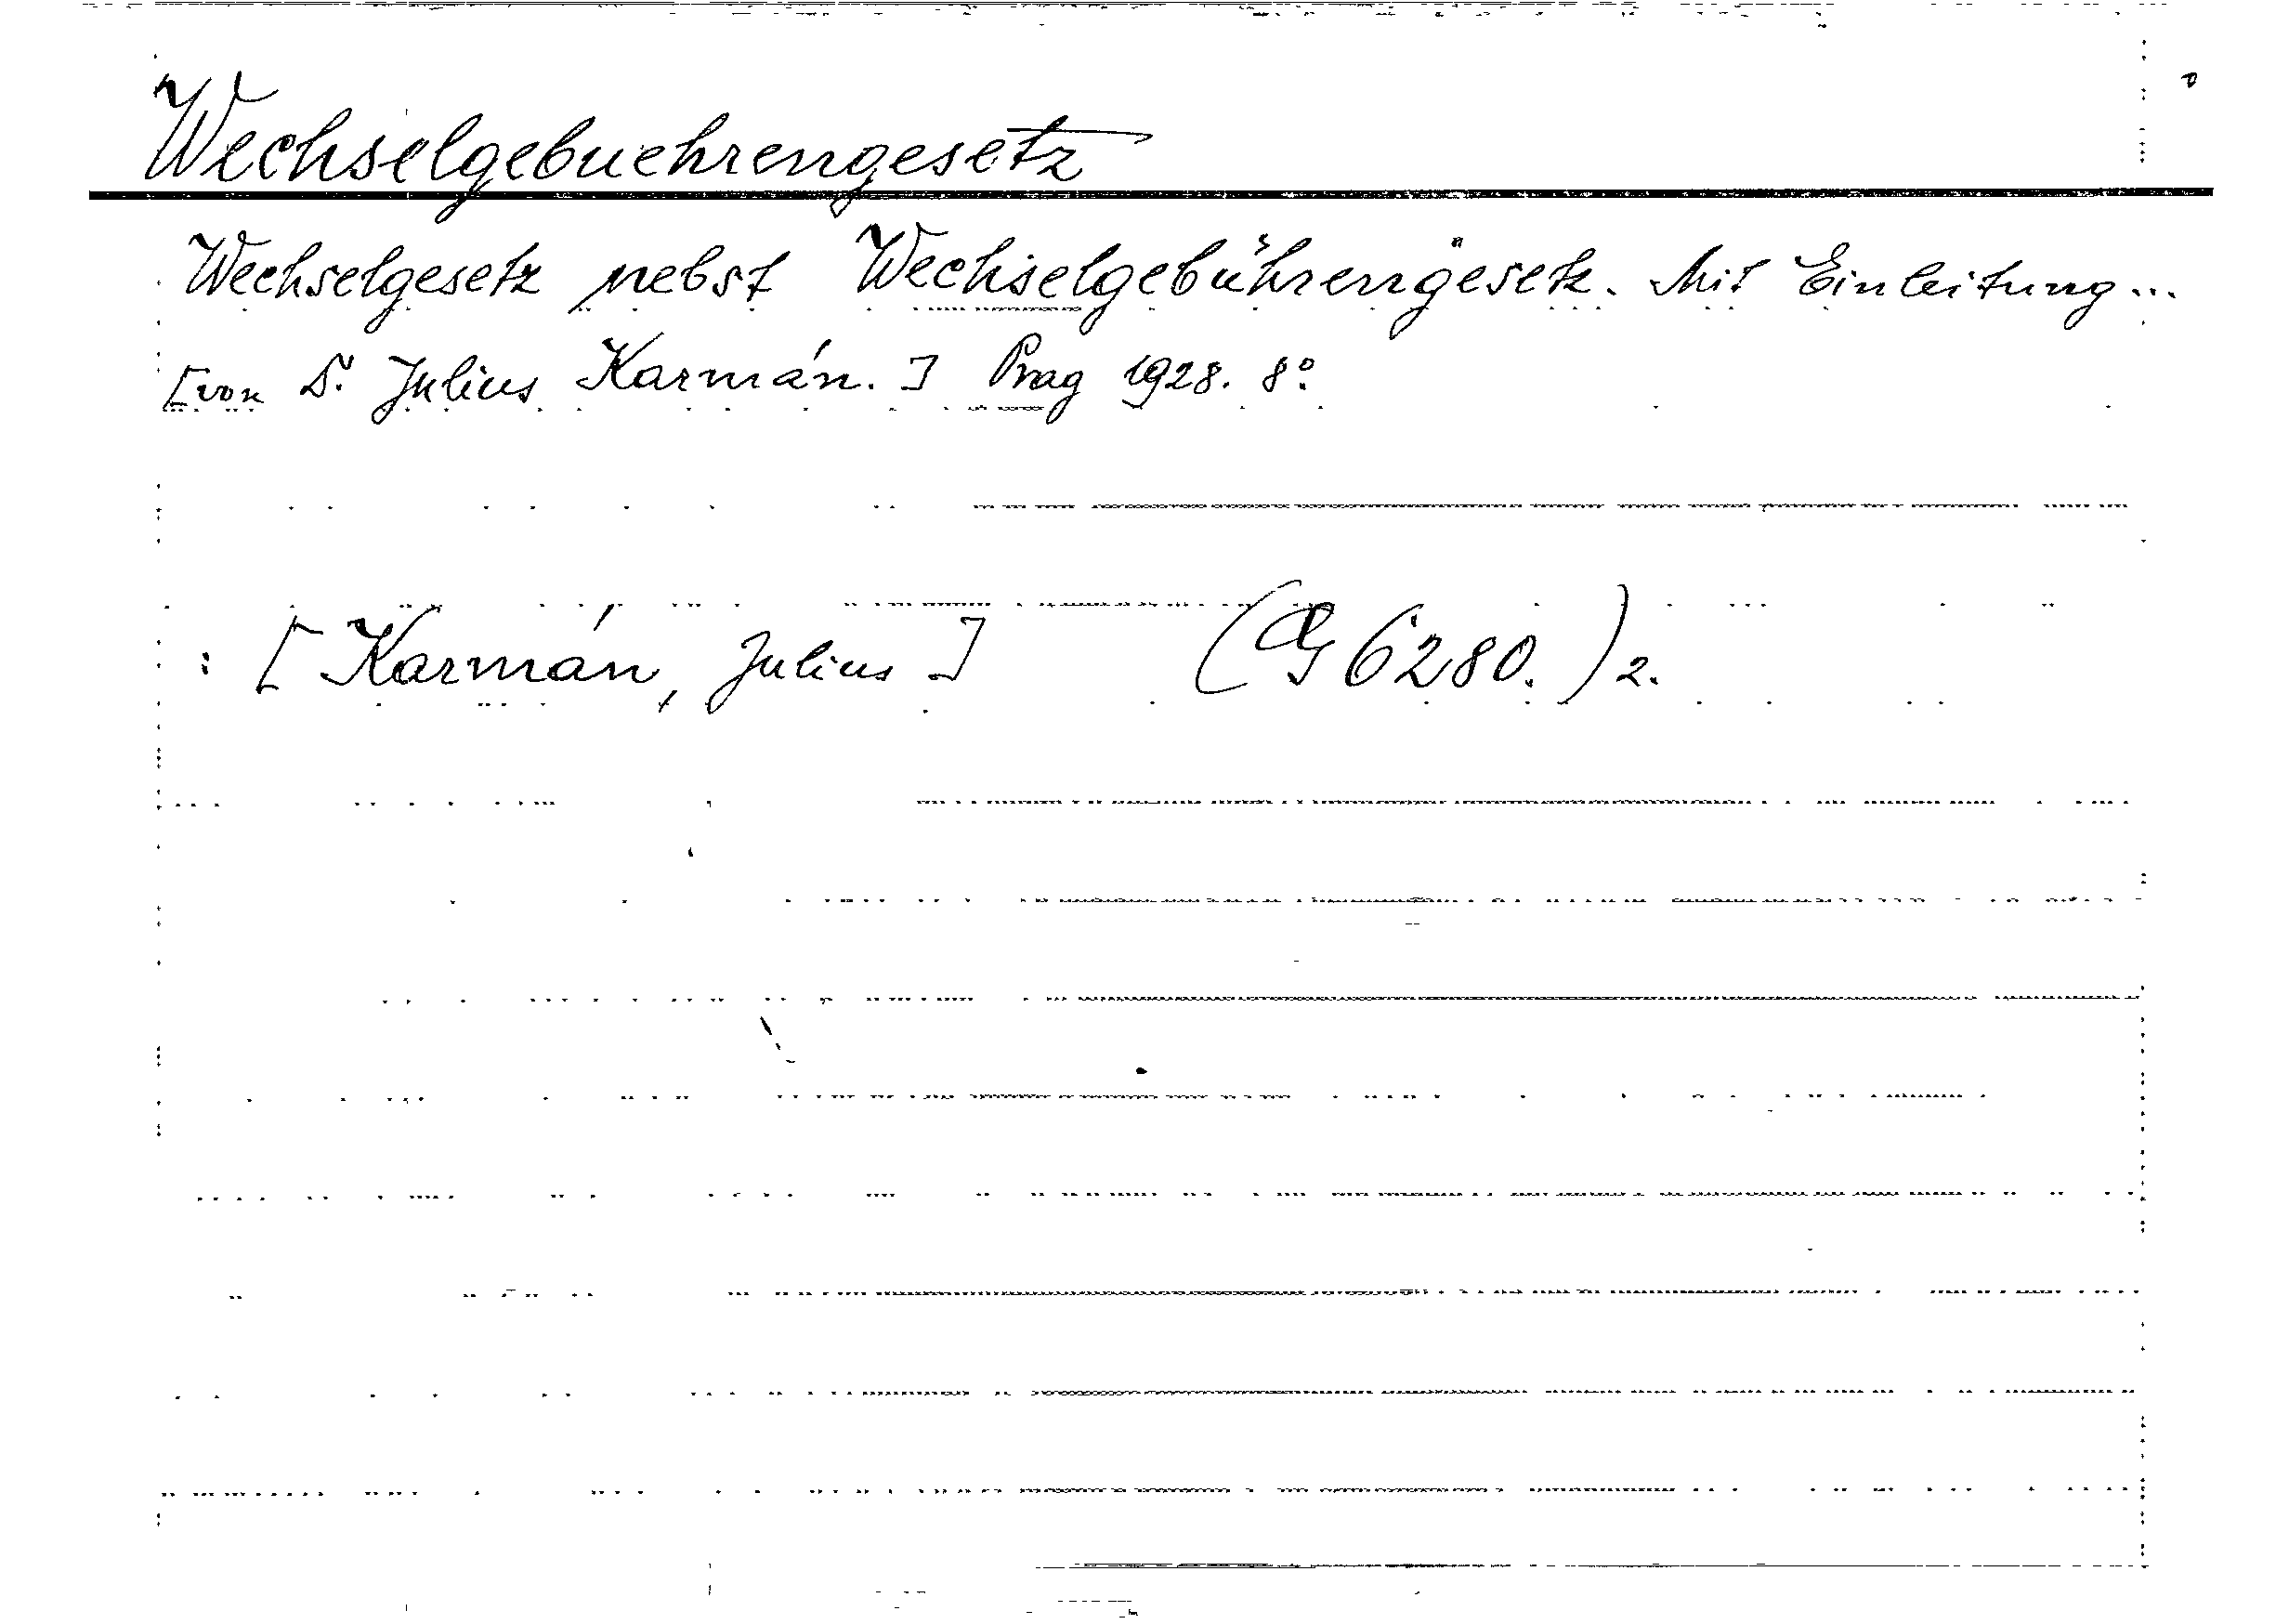 Wechselgebuehrengesetz
Wechselgesetz nebst Wechselgebührengesetz. Mit Einleitung...
[von Dr. Julius Karmán.] Prag 1928. 8°.
: [Karmán, Julius] (G 6280.) 2.